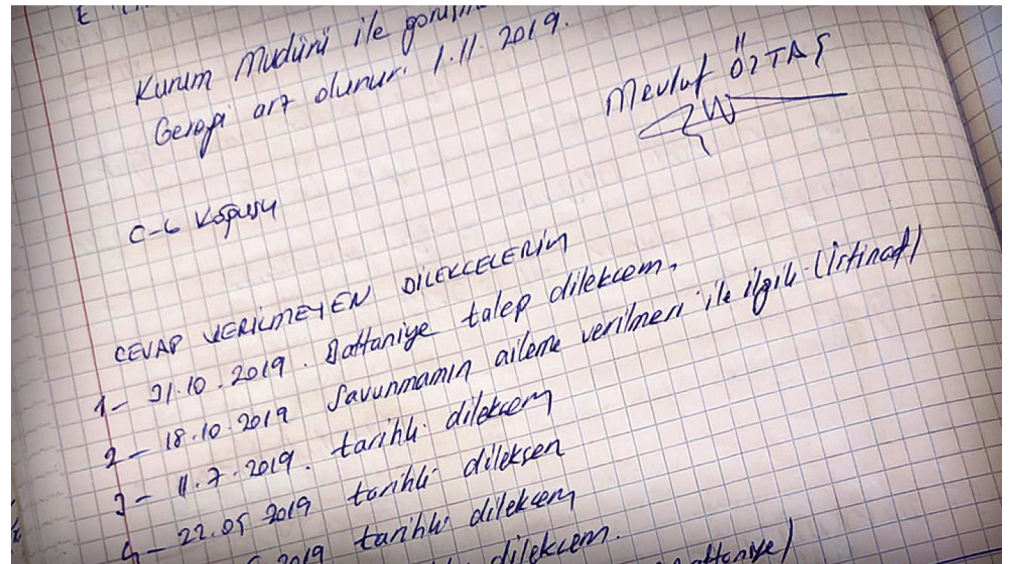 Kurum Müdürü ile görüşme
Gereği arz olunur. 1.11.2019.
Mevlüt ÖZTAŞ
C-6 Koğuşu
CEVAP VERİLMEYEN DİLEKÇELERİM
1- 31.10.2019. Battaniye talep dilekcem.
2- 18.10.2019 Savunmamın aileme verilmesi ile ilgili (istinaf)
3- 11.7.2019. tarihli dilekcem
4- 22.05 2019 tarihli dilekçem
2019 tarihli dilekcem
dilekcem.
battaniye)